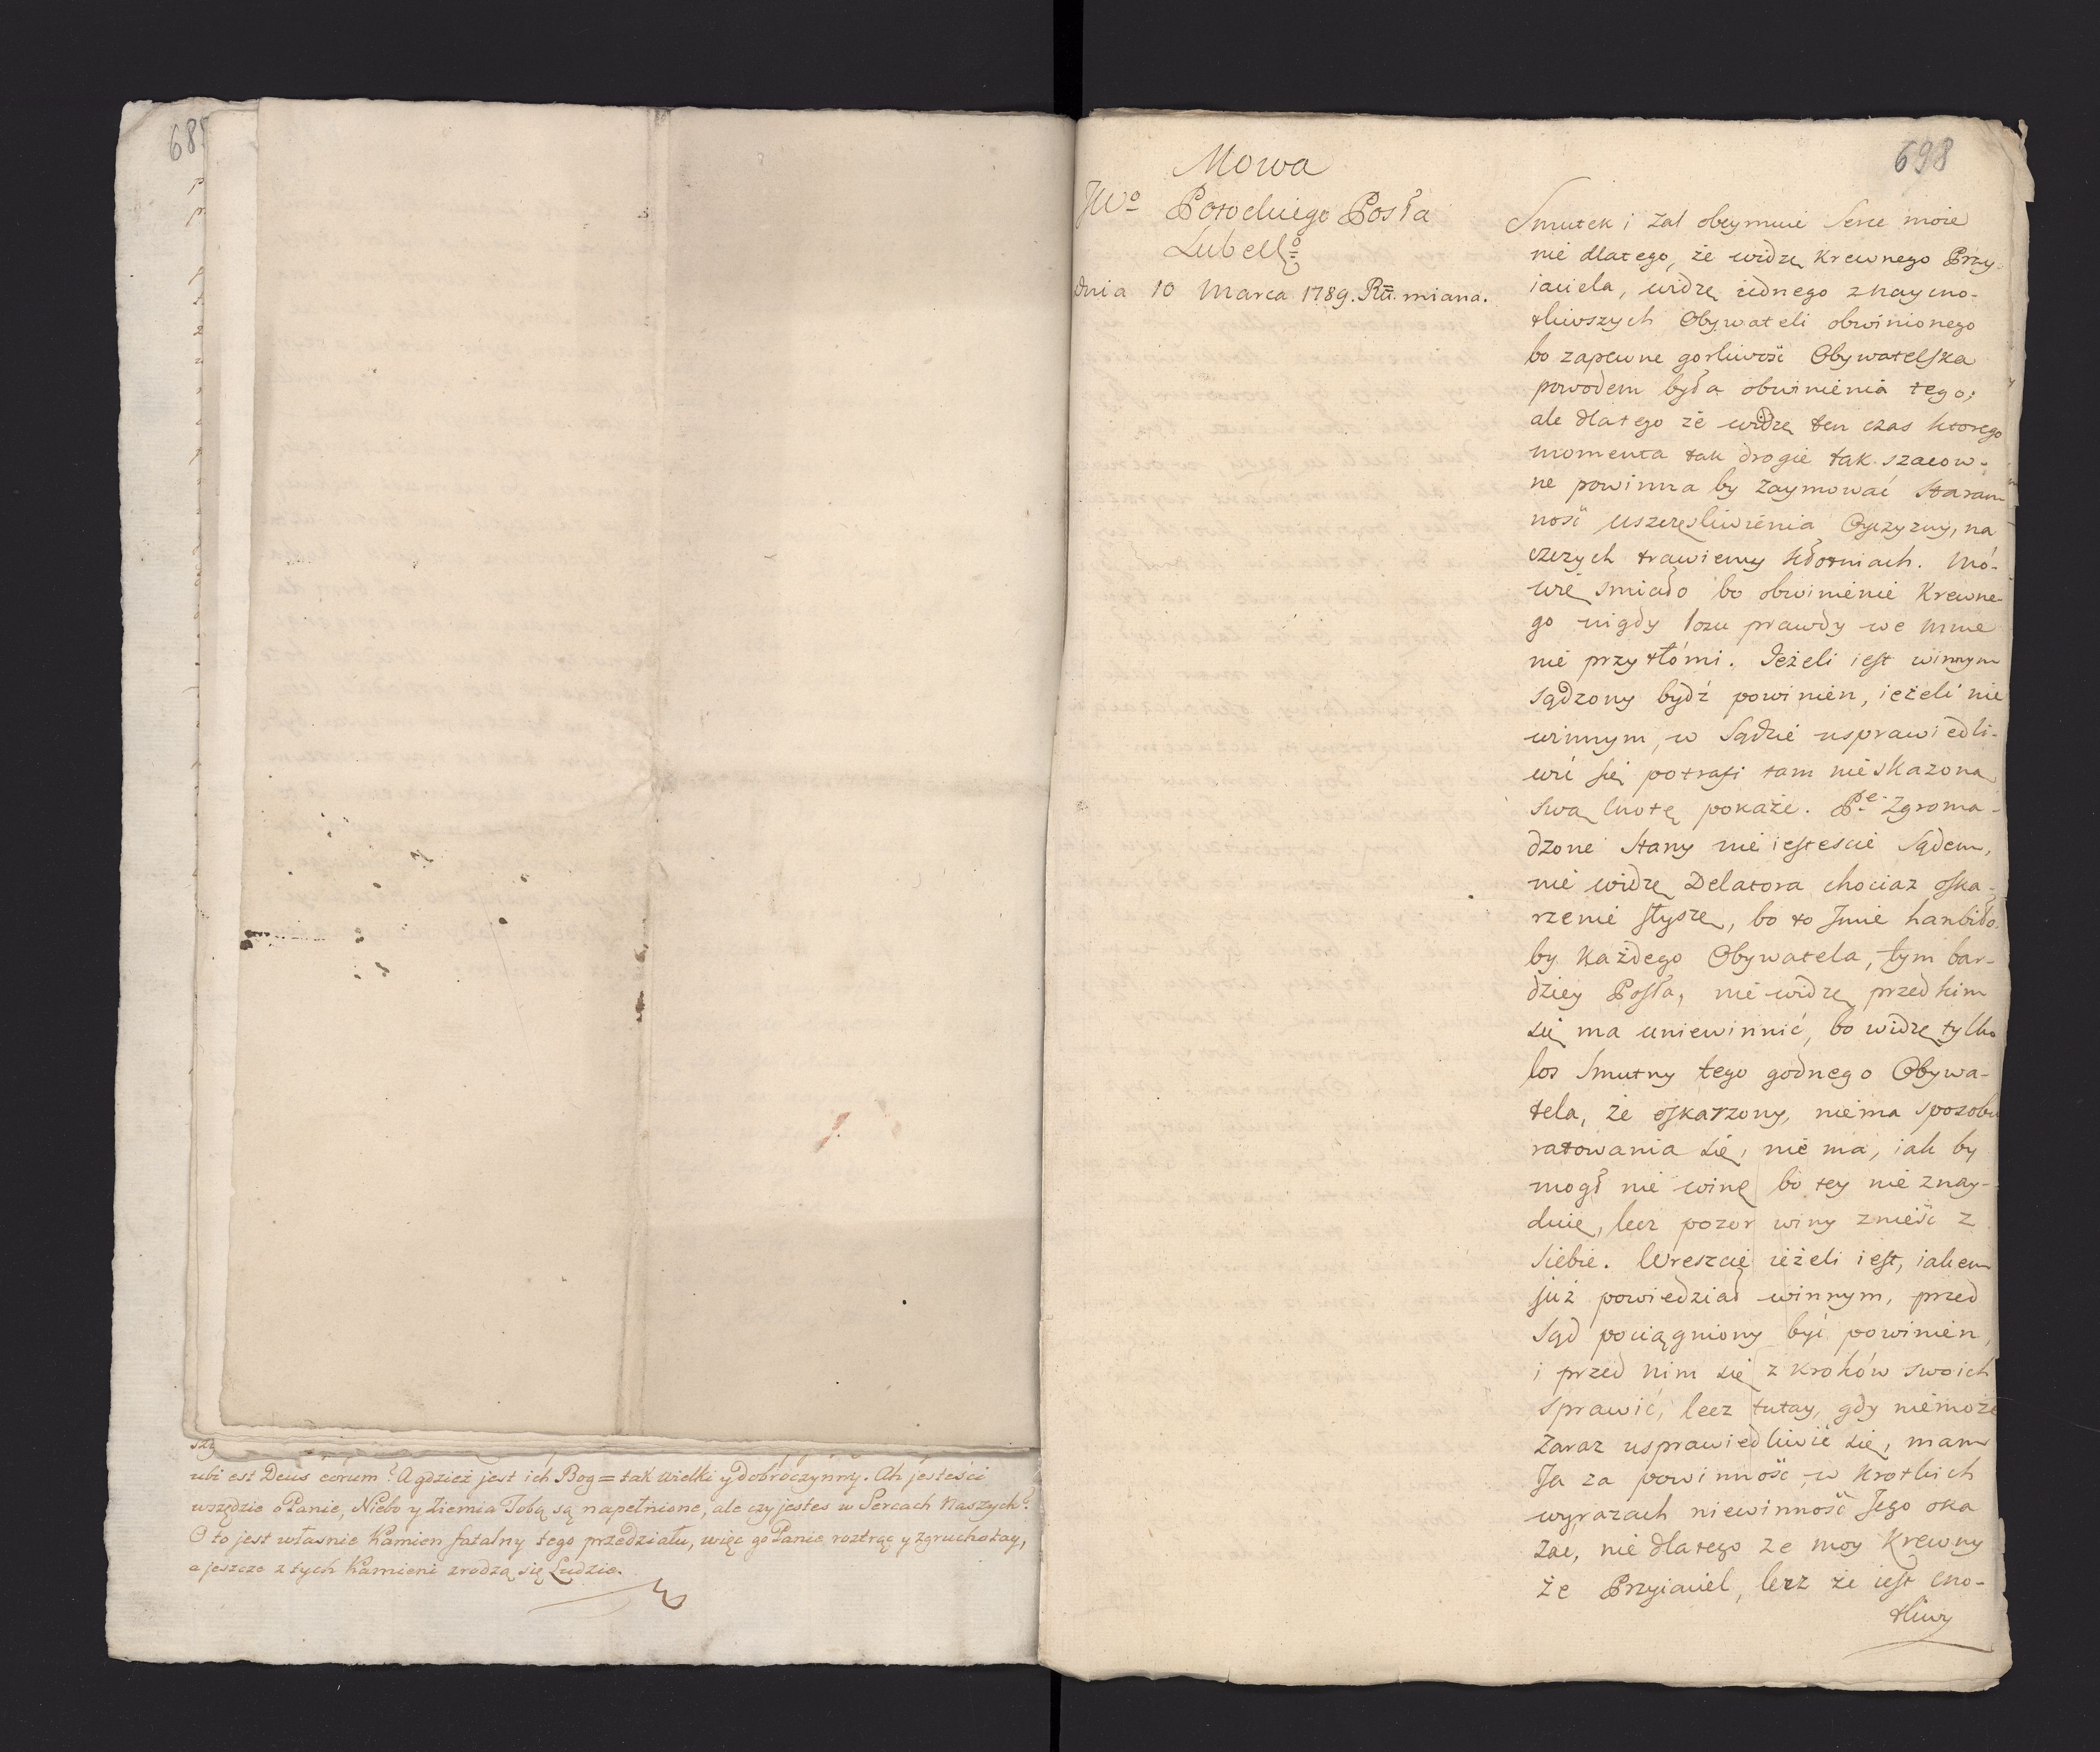 685
ubi est Deus eorum? A gdzież jest ich Bog = tak wielki y dobroczynny. Ah jesteści
wszędzie o Panie, Niebo y Ziemia Tobą są napełnione, ale czy jestes w Sercach Naszych?
O to jest własnie Kamien fatalny tego przedziału, więc go Panie roztrąć y zgruchotay,
a jeszcze z tych Kamieni zrodzą się Ludzie.
698
Mowa
JWo Potockiego Posła
Lubello
dnia 10 Marca 1789. Ru. miana.
Smutek i żal obeymuie Serce moie
nie dlatego, że widzę Krewnego Przy-
iaciela, widzę iednego z naycno-
tliwszych Obywateli obwinionego
bo zapewne gorliwość Obywatelska
powodem była obwinienia tego;
ale dlatego że widzę ten czas ktorego
momenta tak drogie tak szacow-
ne powinna by zaymować staran-
ność uszczęśliwienia Oyczyzny, na
czczych trawiemy kłotniach. Mó-
wię smiało bo obwinienie Krewne-
go nigdy łozu prawdy we mnie
nie przytłómi. Jeżeli iest winnym
sądzony bydź powinien, ieżeli nie
winnym, w Sądzie usprawiedli-
wić się potrafi tam nieskazona
swą Cnotę pokaże. Pe. Zgroma-
dzone Stany nie iesteście Sądem,
nie widzę Delatora chociaz oska-
rzenie słyszę, bo to Jmie hanbiło-
by każdego Obywatela, tym bar-
dziey Posła, nie widzę przed kim
się ma uniewinnić, bo widzę tylko
los Smutny tego godnego Obywa-
tela, że oskarzony, niema sposobu
ratowania się, nie ma, iak by
mogł nie winę bo tey nie znay-
duię, lecz pozor winy znieść z
siebie. Wreszcie ieżeli iest, iakem
już powiedział winnym, przed
Sąd pociągniony być powinien,
i przed nim się z kroków swoich
sprawić, lecz tutay, gdy niemoże
Zaraz usprawiedliwić się, mam
Ja za powinność w krotkich
wyrazach niewinność Jego oka
zac, nie dlatego że moy Krewny
że Przyiaciel, lecz że iest cno-
tliwy